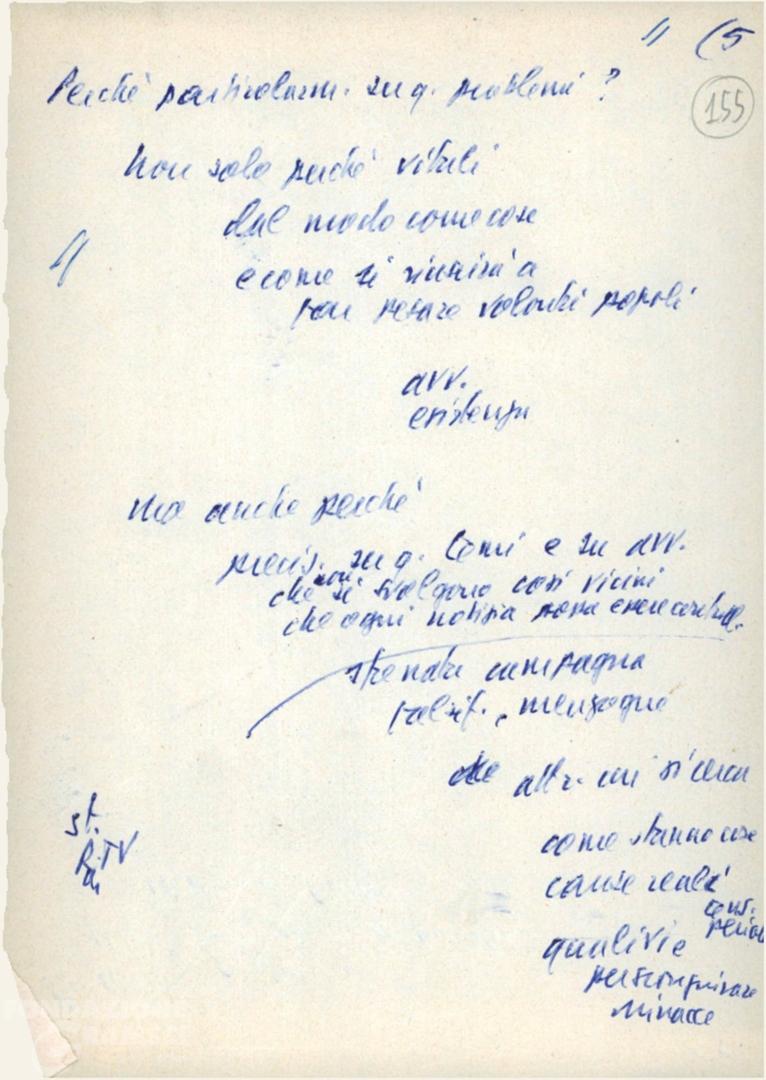 (5
155
Perché particolarm. su q. problemi?
Non solo perché vitali
dal modo come cose
e come si riuscirà a
far pesare volontà popoli
avv.
esistenza
Ma anche perché
precis. su q. temi e su avv.
che non si svolgono così vicini
che ogni notizia possa essere
sfrenata campagna
falsif., menzogne
attr. cui si cerca
come stanno cose
cause reali
cons.
quali vie
per scongiurare
minacce
st.
R.TV